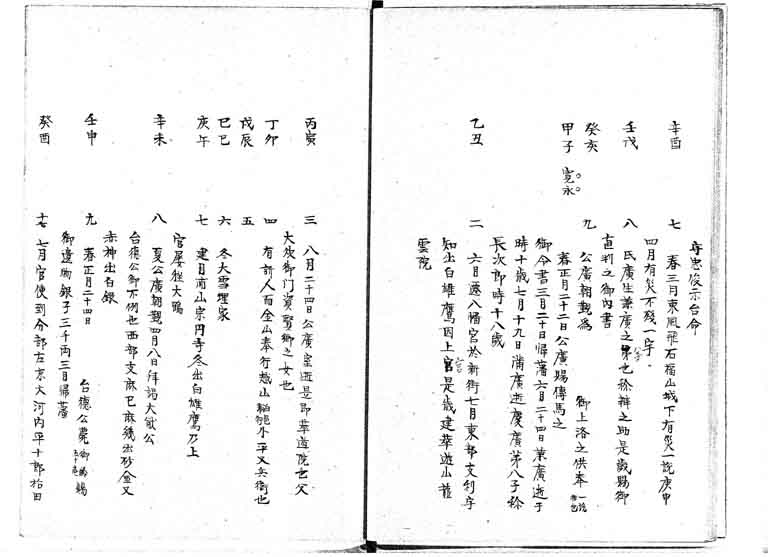 守忠俊示台命
辛酉 七 春三月東風飛石福山城下有災一説庚申
四月有災不残一宇
壬戌 八 氏廣生兼廣之弟也稱辨之助是歳賜御
直判之御内書
癸亥 九 公廣朝覲為 御上洛之供奉
甲子 寛永 春正月二十二日公廣賜傳馬之
御令書三月二十日帰藩六月二十四日兼廣逝于
時十歳七月十九日満廣逝慶廣第八子稱
長次郎時十八歳
乙丑 二 六月遷八幡宮於新街七月東部支利宇
知出白雄鷹因上官是歳建華遊山龍
雲院
丙寅 三 八月二十四日公廣室逝是即華遊院也父
大炊御門資賢卿之女也
丁卯 四 有訴人而金山奉行越山小平又兵衛也
戊辰 五
己巳 六 冬大雪埋家
庚午 七 建月宗円寺冬出白雄鷹乃上
官屡狂大鴨
辛未 八 夏公廣朝覲四月八日拜謁大猷公
台德公御不例也西部支麻己麻幾出砂金又
赤神出白銀
壬申 九 春正月二十四日 台德公薨賜
御遺物銀子三千両三月帰藩
癸酉 十 七月官使到分部左京大河内平十郎松田